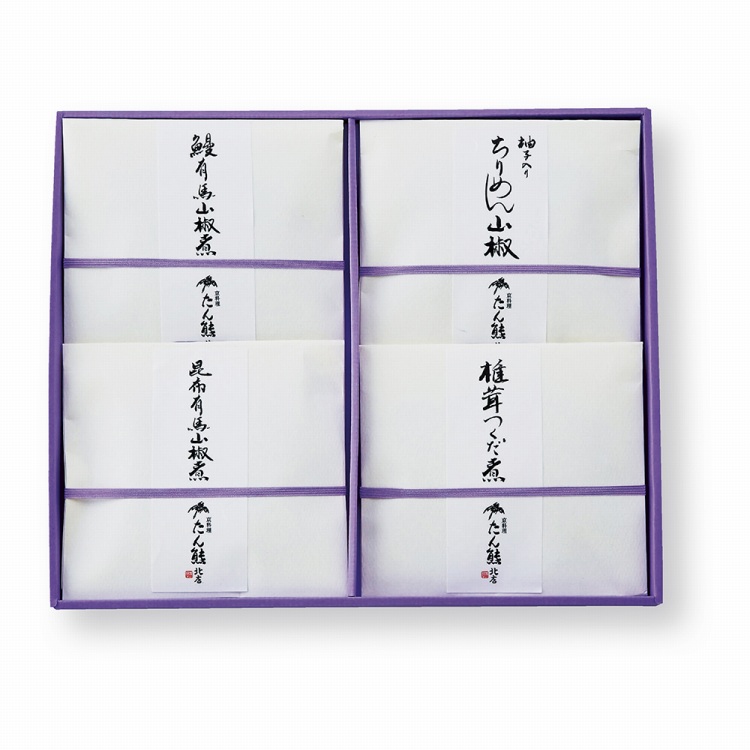 鰻有馬山椒煮
京料理
たん熊
柚子入り
ちりめん山椒
京料理
たん熊
昆布有馬山椒煮
京料理
たん熊
北店
椎茸つくだ煮
京料理
たん熊
北店